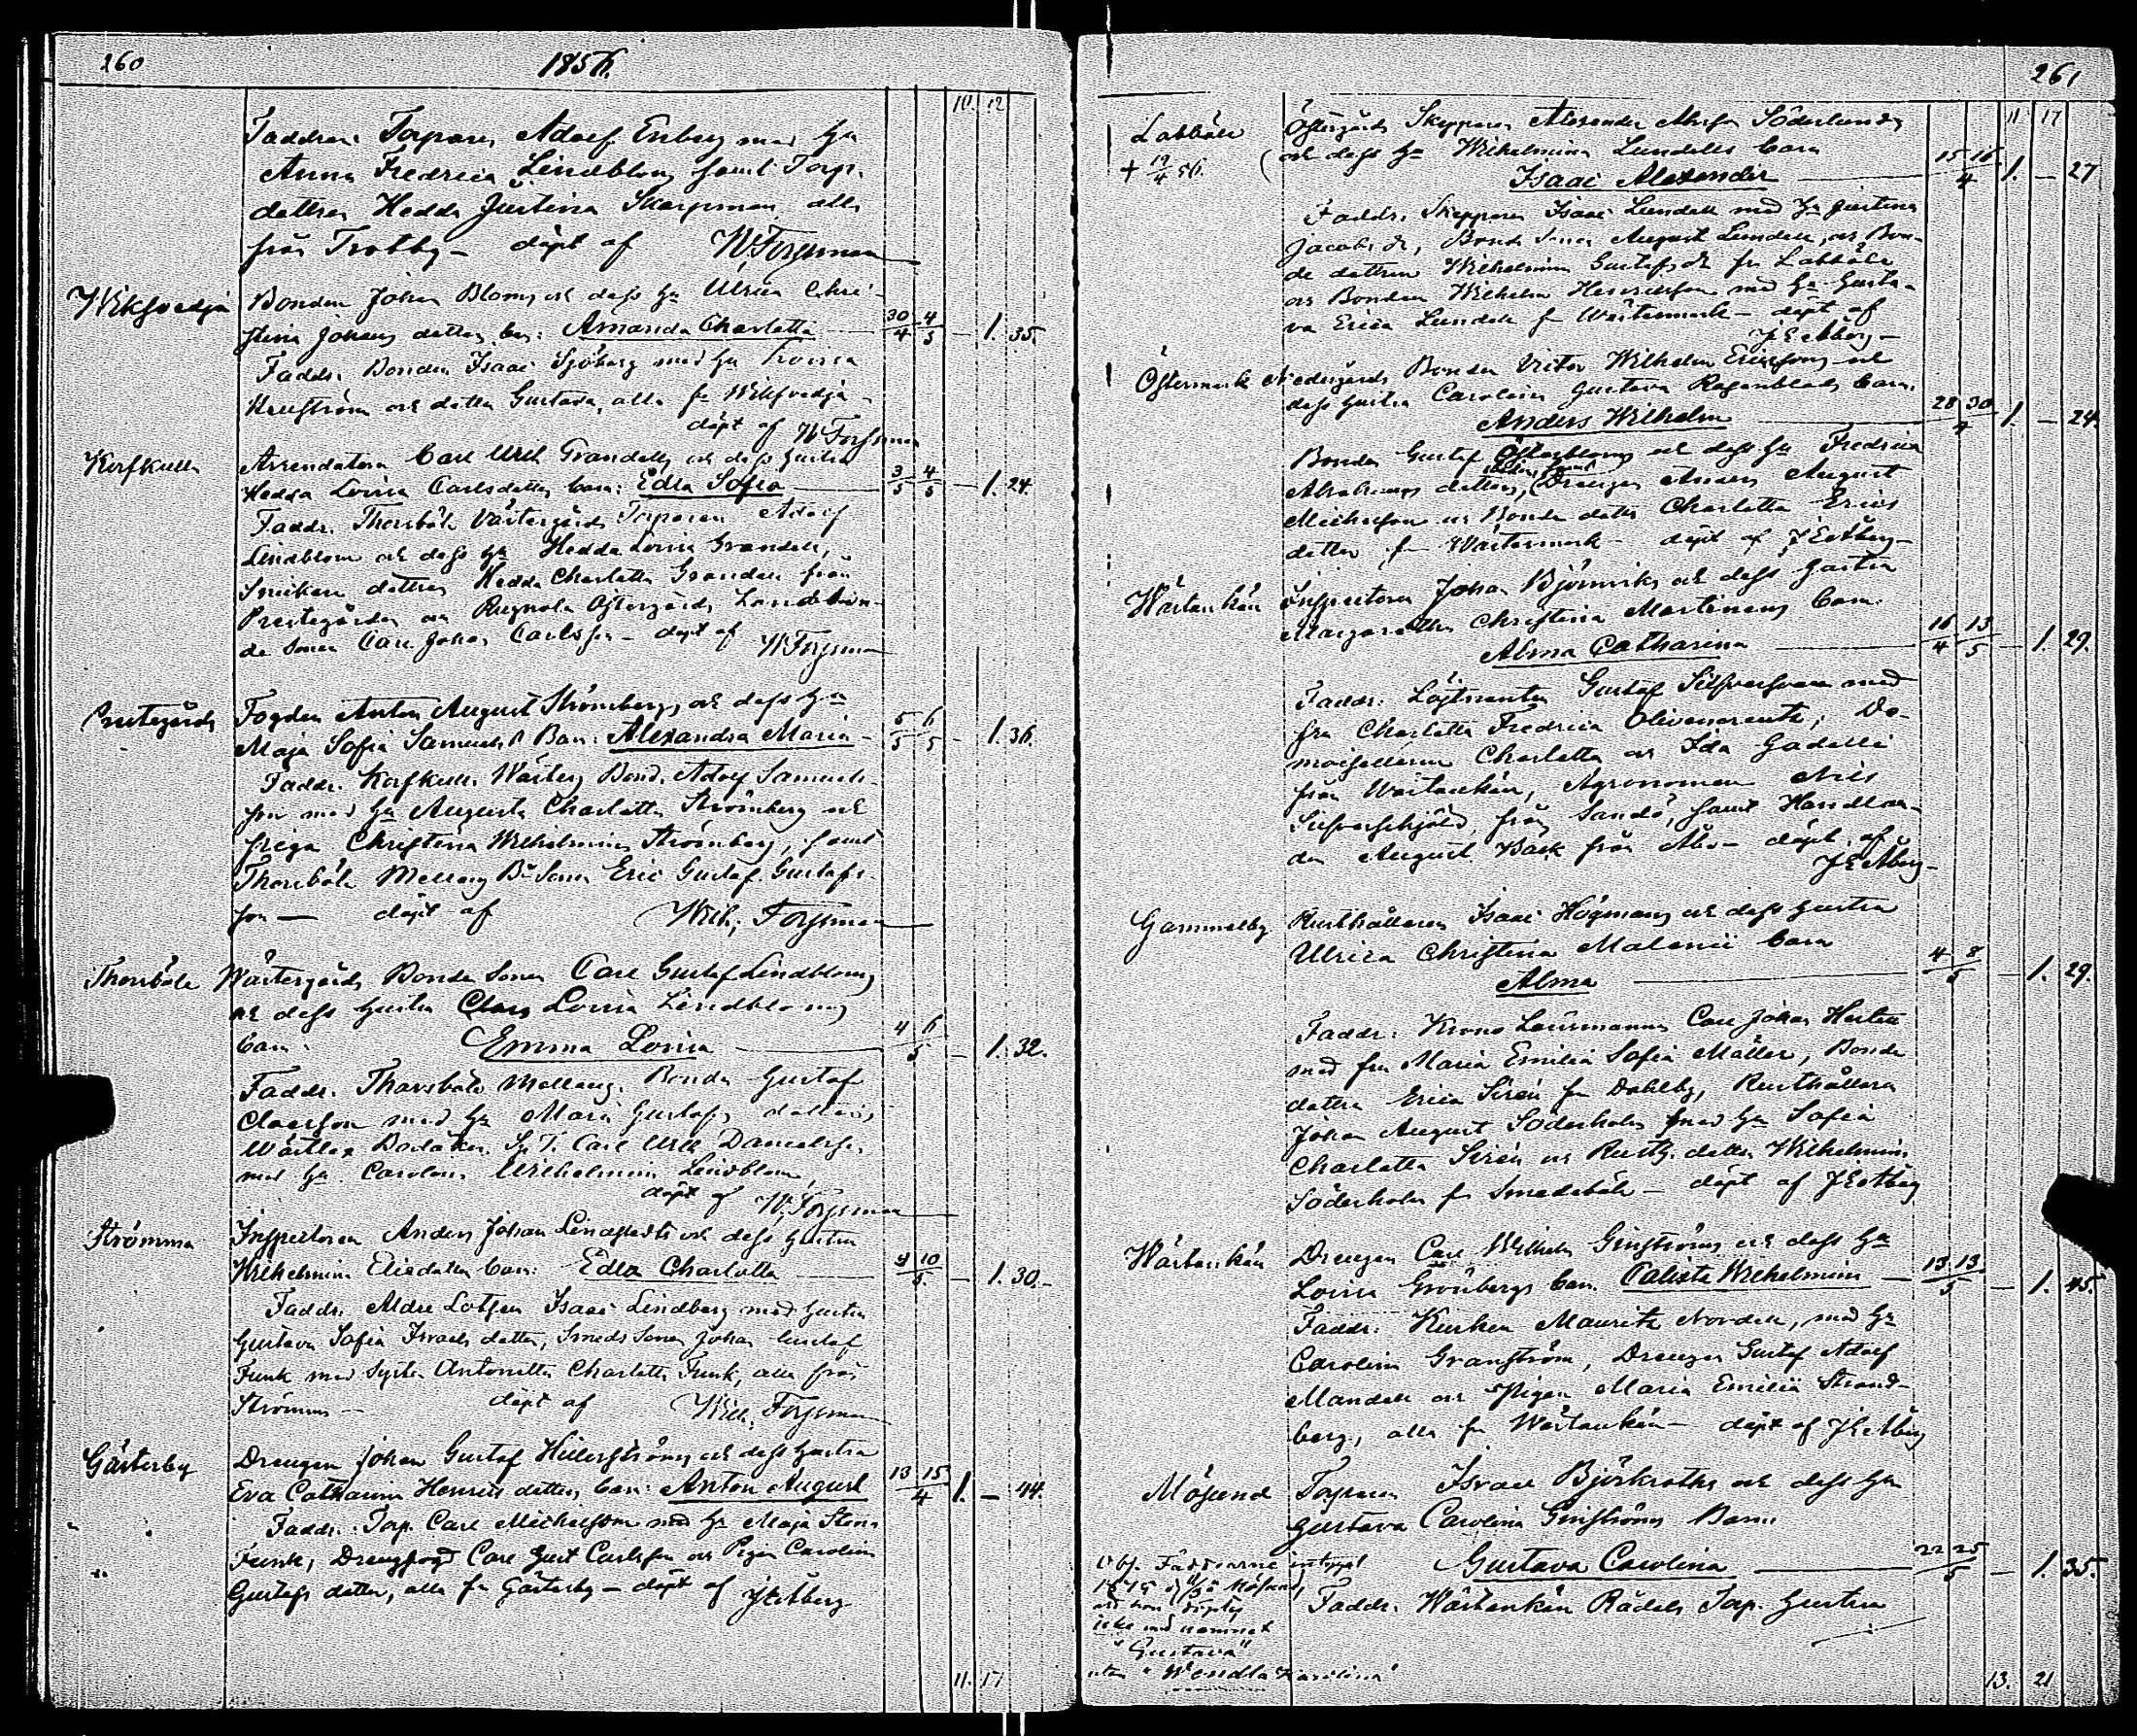 260 1856.
10. 12
Faddrar: Torparen Adolf Enberg med hu
Anna Fredrica Lindblom samt Torp.
dottren Hedda Justina Skarpman alla
från Trotby – döpt af W. Forssman
Wiksvedja Bonden Johan Bloms och dess hu Ulrica Chri-
stina Johans dotters barn: Amanda Charlotta 30/4 4/5 – 1. 35.
Faddr. Bonden Isaac Sjöberg med hu Lovisa
och dottren Gustava, alla fr Wiksvedja –
döpt af W Forssman
Korfkulla Arrendatorn Carl Ulrik Grandells och dess hustru
Hedda Lovisa Carlsdotters barn: Edla Sofia 3/5 4/5 – 1. 24.
Faddr. Thorsböle Västergårds Torparen Adolf
Lindblom och dess hu Hedda Lovisa Grandell,
Snickare dottren Hedda Charlotta Grandell från
Prestegården och Rugnola Östergårds Landbon-
de sonen Carl Johan Carlsson – döpt af W Forssman
Prestegårds Fogden Anton August Strömbergs och dess hu
Maja Sofia Samuels d. Barn: Alexandra Maria 5/5 6/5 – 1. 36.
Faddr. Korfkulla Wästerg. Bond. Adolf Samuels-
son med hu Augusta Charlotta Strömberg och
pigan Christina Wilhelmina Strömberg, samt
Thorsböle Mellang B. Sonen Eric Gustaf Gustafs-
son – döpt af Wilh. Forssman
Thorsböle Wästergårds Bonde Sonen Carl Gustaf Lindbloms
och dess hustru Clara Lovisa Lindbloms
barn: Emma Lovisa 4 6/5 – 1. 32.
Faddr. Thorsböle Mellang. Bonden Gustaf
Claesson med hu Maria Gustafs dotter,
Carl Ulrik Danielsson
med hu Carolina Wilhelmina Lindblom,
döpt af W. Forssman
Strömma Inspectoren Anders Johan Lindstedts och dess hustru
Wilhelmina Eliedotters barn: Edla Charlotta 9 10/5 – 1. 30.–
Faddr. Äldre Lotsen Isaac Lindberg med hustru
Gustava Sofia Israels dotter, Smeds Sonen Johan Gustaf
Funk med Syster Antonetta Charlotta Funk, alla från
Strömma – döpt af Wilh. Forssman
Gästerby Drengen Johan Gustaf Hillerströms och dess hustru
Eva Catharina Henrics dotters barn: Anton August 13 15/4 1. – 44.
Faddr. Torp. Carl Michelsson med hu Maja Stina
Funk, Drengfogd Carl Gust Carlsson och Pigan Carolina
Gustafs dotter, alla fr Gästerby – döpt af J E Åberg
11. 17
261
11 17
Labböle Östergårds Skepparen Alexander Söderlunds
+ 19/4 56. och dess hu Wilhelmina Lundells barn
Isaac Alexander 15 16/4 1. – 27
Faddr. Skepparen Isaac Lundell med hu Justina
Jacobs dr, Bonde Sonen August Lundell, och Bon-
de dottren Wilhelmina Gustafs dr fr Labböle
och Bonden Wilhelm Henricsson med hu Gusta-
va Erica Lundell fr Wästermark – döpt af
J E Åberg –
Östermark Nedergårds Bonden Victor Wilhelm Ericssons och
dess hustru Carolina Gustava Rosenblads barn.
Anders Wilhelm 28 30/4 1. – 24.
Bonden Gustaf Österbloms och dess hu Fredrica
Abrahams dotter, Drengen Anders August
Michelsson och Bonde dottr Charlotta Erics
dotter fr Wästermark – döpt af J E Åberg –
Wärtankån Inspectoren Johan Björnviks och dess hustru
Margaretha Christina Martinens barn.
Alma Catharina 16/4 13/5 – 1. 29.
Faddr. Löjtnanten Gustaf Silfversvan med
fru Charlotta Fredrica Olivencreutz, De-
moisellerna Charlotta och Ida Gadelli
från Wärtankån, Agronomen Nils
från Sandö, samt Handlan-
den August Bäck från Åbo – döpt af
J E Åberg –
Gammelby Rusthållaren Isaac Högmans och dess hustru
Ulrica Christina Malenii barn
Alma 4 8/5 – 1. 29.
Faddr. Krono Länsmannen Carl Johan Herlin
med fru Maria Emilia Sofia Möller, Bonde
dottren Erica Sirén fr Dahlby, Rusthållaren
Johan August Söderholm med hu Sofia
Charlotta Sirén och Rusth. dottren Wilhelmina
Söderholm fr Smedsböle – döpt af J E Åberg
Wärtankån Drengen Carl Wilhelm Ginströms och dess hu
Lovisa Grönbergs barn. Calista Wilhelmina 13 13/5 – 1. 45.
Faddr: Kusken Mauritz Nordell, med hu
Carolina Granström, Drengen Gustaf Adolf
Mandell och Pigan Maria Emilia Strand-
berg, alla fr Wärtankån – döpt af J E Åberg
Mösund Torparen Israel Björkroths och dess hu
Gustava Carolina Ginströms Barn
Gustava Carolina 22 25/5 – 1. 35.
Faddr. Wärtankån Rädels Torp. hustru
Obs. Faddrarne intygat
att hon döptes
icke med namnet
"Gustava"
utan "Wendla Karolina"
13. 21